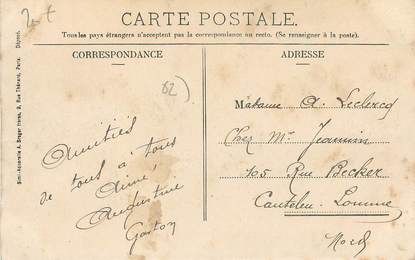 CARTE POSTALE.
Tous les pays étrangers n'acceptent pas la correspondance au recto. (Se renseigner à la poste).
CORRESPONDANCE
ADRESSE
82)
Amitiés
de tous à tous
Aimé,
Augustine
Gaston
Madame A. Leclercq
Chez Mr Jeannin
105 Rue Becker
Canteleu-Lomme
Nord
Simi-Aquarelle A. Breger frères, 9, Rue Thénard, Paris. Déposé.